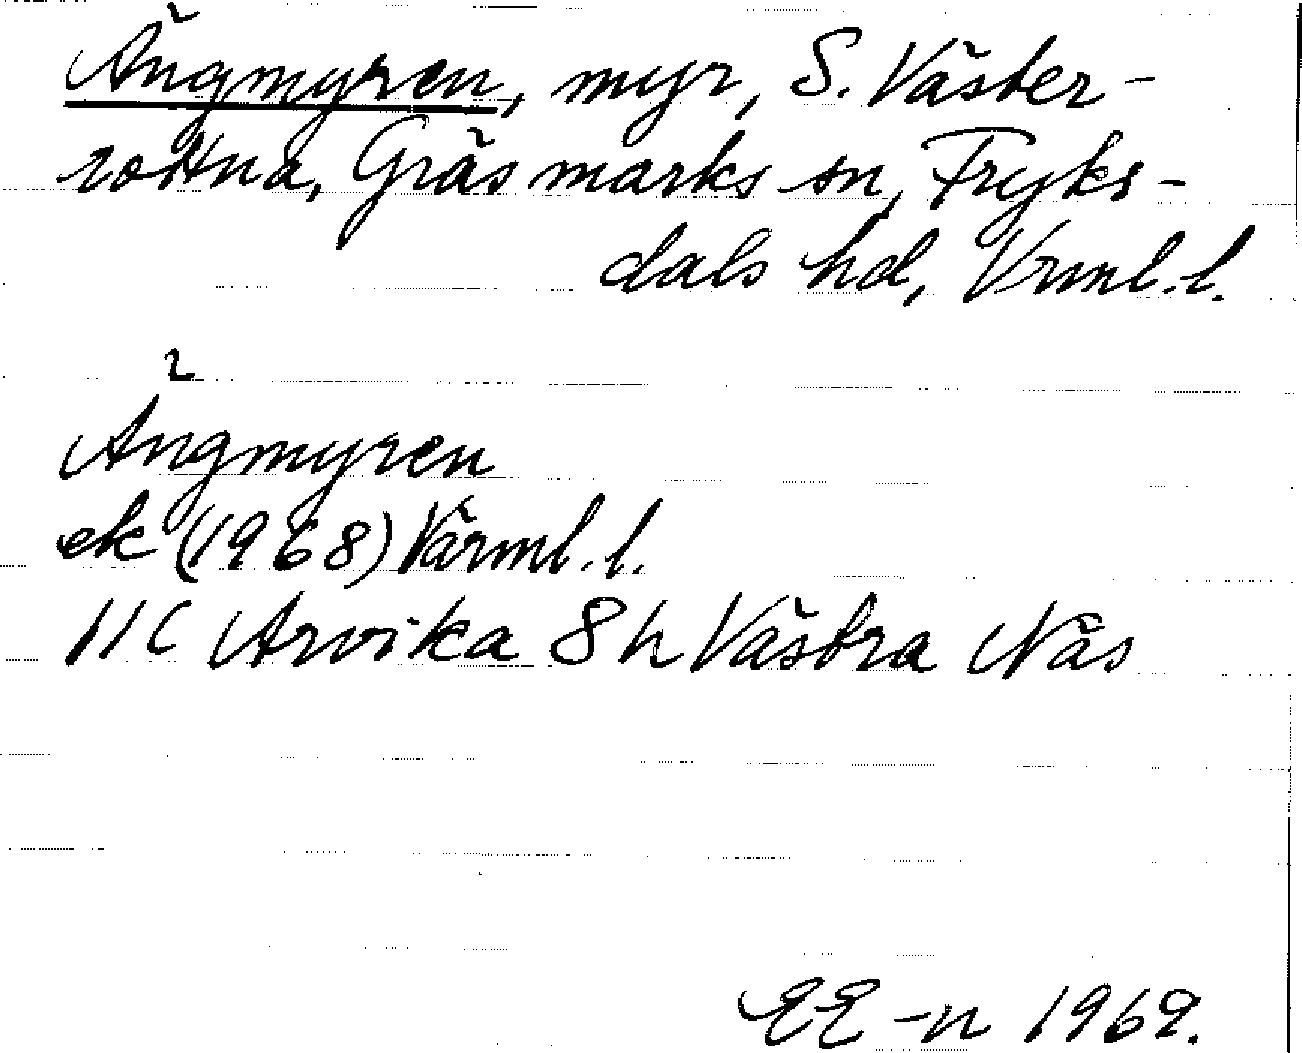 Ängmyren, myr, S. Väster-
rottna, Gräsmarks sn, Fryks-
dals hd, Vrml. l.
Ängmyren
ek (1968) Värml. l.
11C Arvika 8h Västra Näs
EE-n 1969.